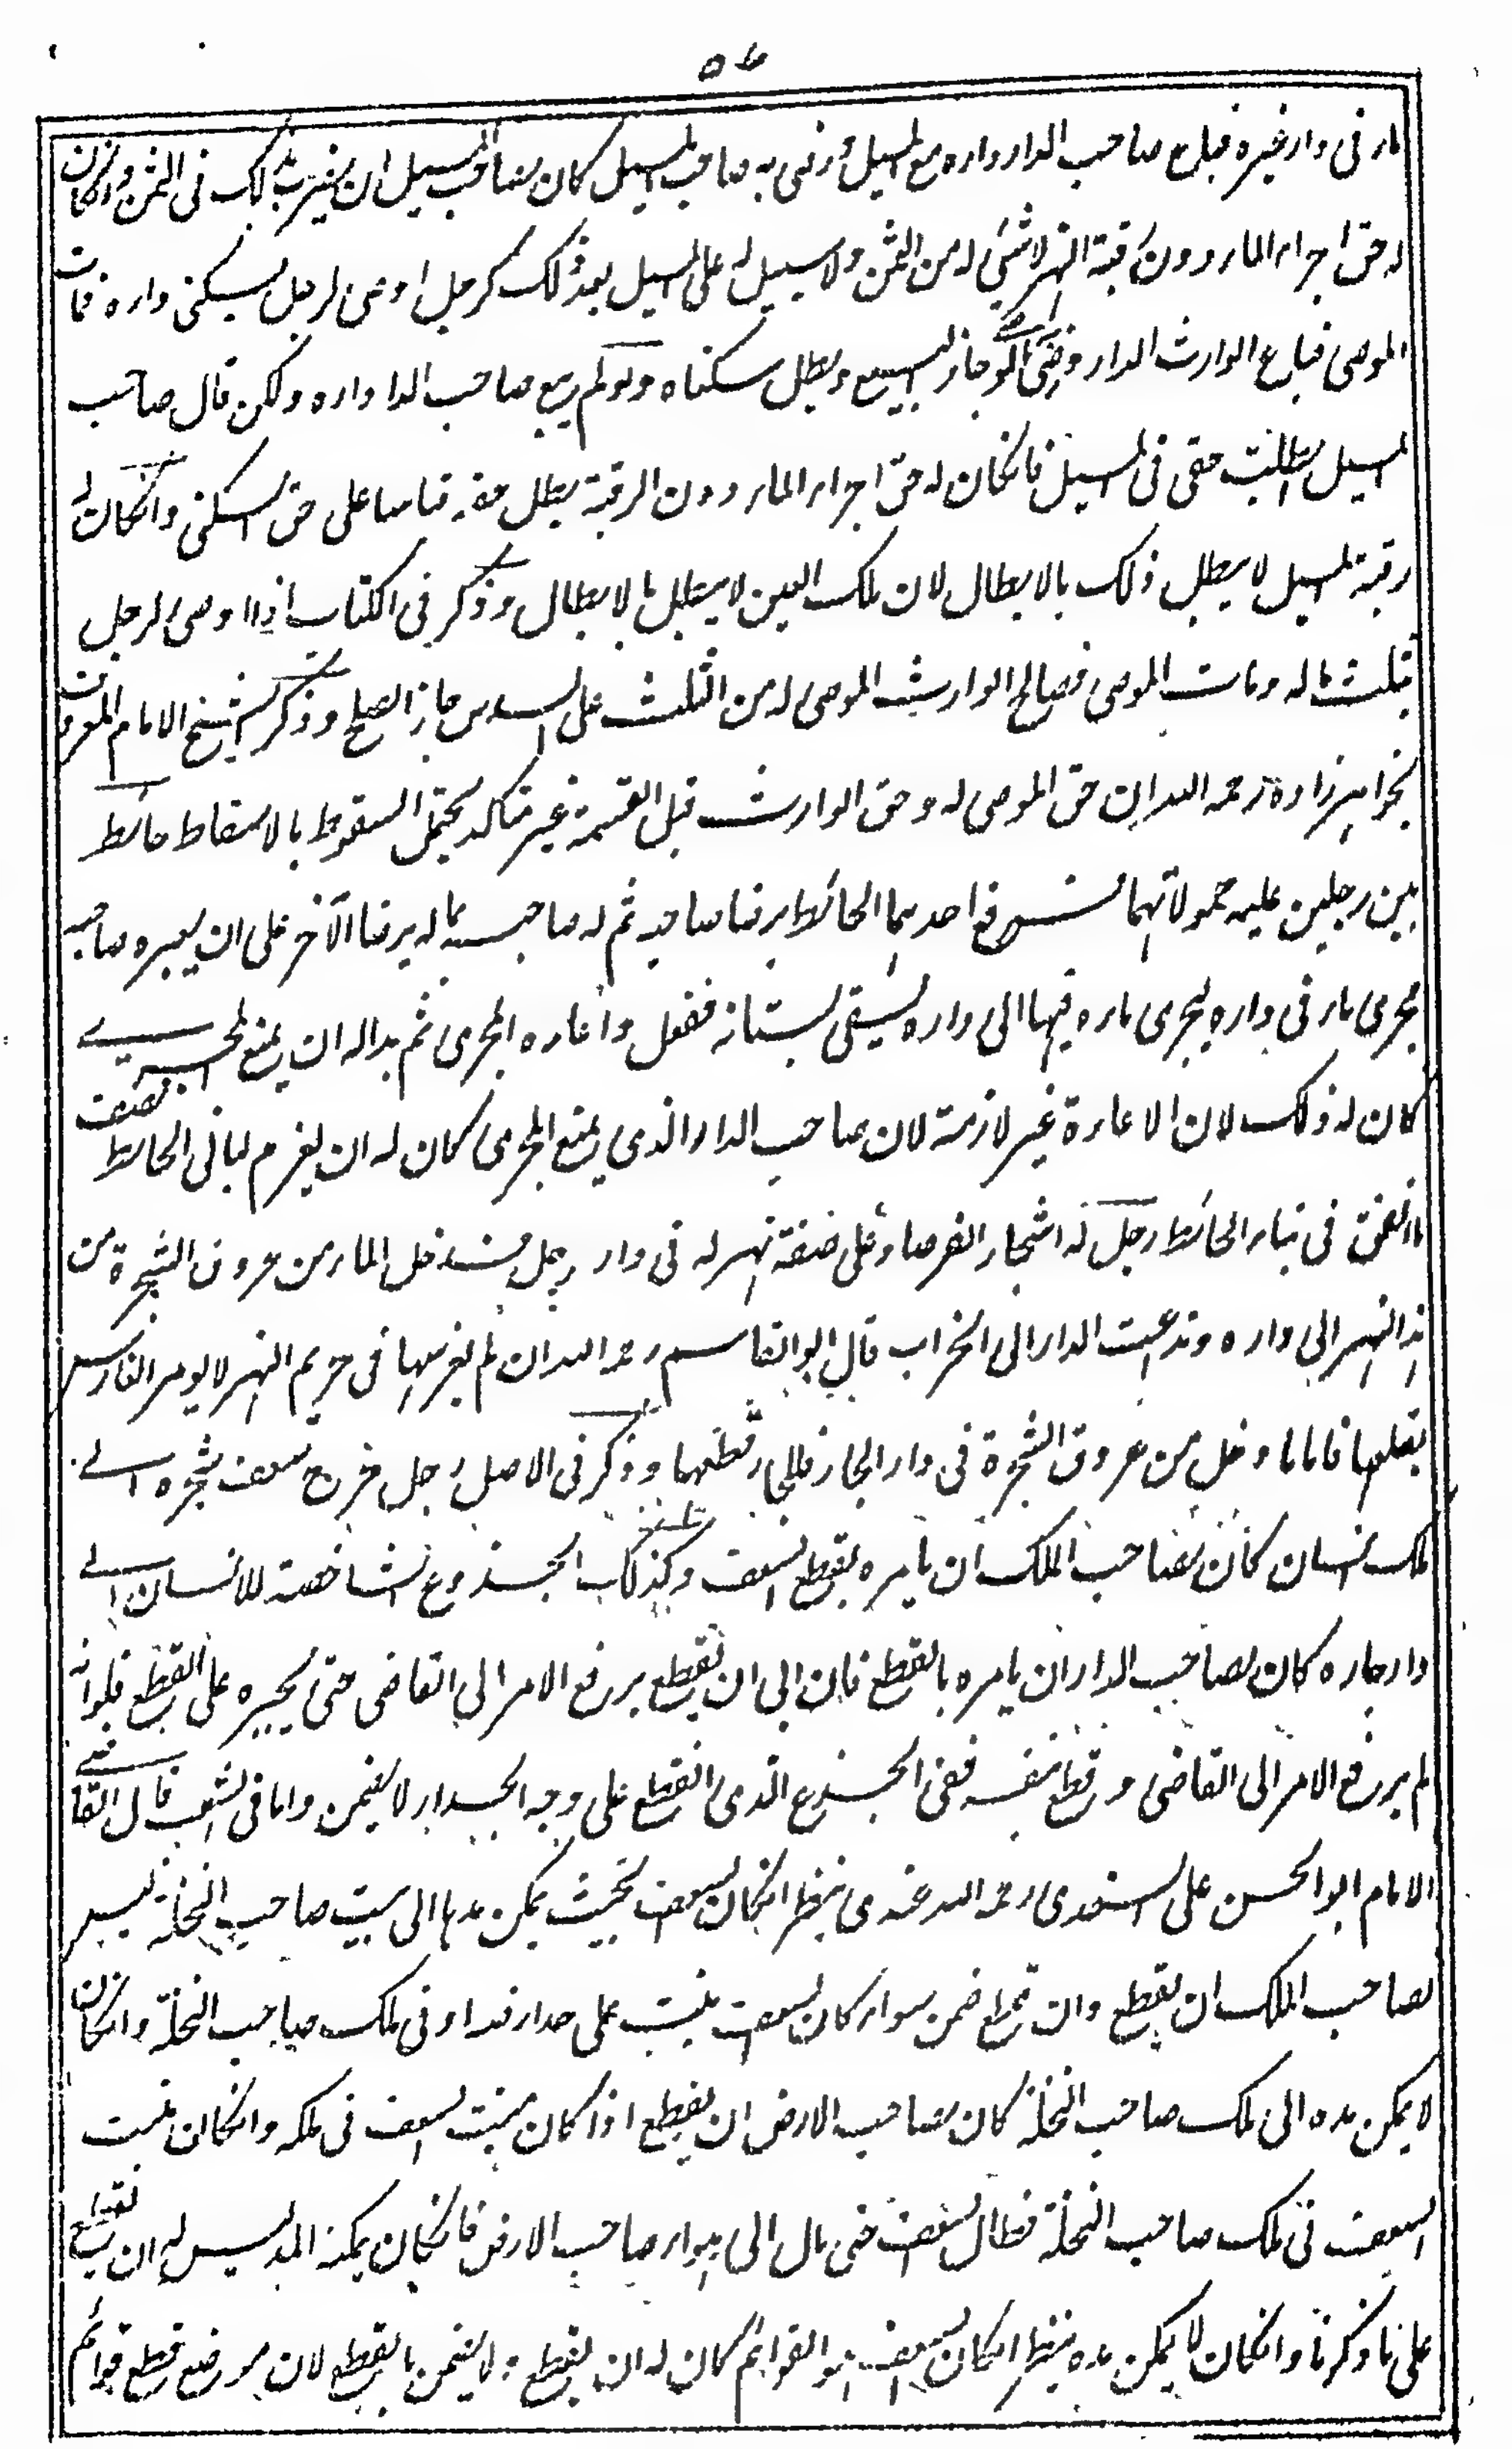 ٥٦
ماء فى دار غيره فباع صاحب الدار داره مع المسيل ورضى به صاحب المسيل كان لصاحب المسيل ان يضرب بذلك فى الثمن وان كان
له حق اجراء الماء دون رقبة النهر لا شئ له من الثمن ولا سبيل له على المسيل بعد ذلك كرجل اوصى لرجل بسكنى داره فمات
الموصى فباع الوارث الدار ورضى الموصى له جاز البيع وبطل سكناه ولو لم يبع صاحب الدار داره ولكن قال صاحب
المسيل ابطلت حقى فى المسيل فان كان له حق اجراء الماء دون الرقبة بطل حقه قياسا على حق السكنى وان كان له
رقبة المسيل لا يبطل ذلك بالابطال لان ملك العين لا يبطل بالابطال وذكر فى الكتاب اذا اوصى لرجل
بثلث ماله ومات الموصى فصالح الوارث الموصى له من الثلث على السدس جاز الصلح وذكر الشيخ الامام المعروف
بخواهر زاده رحمه الله ان حق الموصى له وحق الوارث قبل القسمة غير متاكد يحتمل السقوط بالاسقاط حائط
بين رجلين عليه حمولاتهما فواحد بما الحائط برضا صاحبه ثم له صاحب بماله برضا الآخر على ان يعيره صاحبه
مجرى ماء فى داره ليجرى ماءه فيها الى داره ليسقى بستانه ففعل واعاره المجرى ثم بدا له ان يمنع المجرى
كان له ذلك لان الاعارة غير لازمة لان صاحب الدار الذى يمنع المجرى كان له ان يغرم لبانى الحائط نصف
ما انفق فى بناء الحائط رجل له اشجار الفرصاد على ضفة نهر له فى دار رجل فدخل الماء من عروق الشجرة من
هذا النهر الى داره وتداعت الدار الى الخراب قال ابو القاسم رحمه الله ان لم يغرسها فى حريم النهر لا يومر الغارس
بقلعها فاما ما دخل من عروق الشجرة فى دار الجار فللجار قطعها وذكر فى الاصل رجل خرج سعف شجره الى
ملك انسان كان لصاحب الملك ان يامره بقطع السعف وكذلك الجذوع الشاخصة للانسان الى
دار جاره كان لصاحب الدار ان يامره بالقطع فان ابى ان يقطع يرفع الامر الى القاضى حتى يجبره على القطع فلو انه
لم يرفع الامر الى القاضى وقطع بنفسه ففى الجذوع الذى القطع على وجه الجدار لا يضمن واما فى الشعب قال القاضى
الامام ابو الحسن على السغدى رحمه الله عندى ينظر ان كان السعف بحيث يمكن مدها الى بيت صاحب النخلة ليس
لصاحب الملك ان يقطع وان قطع ضمن سواء كان السعف ينبت على جداره او فى ملك صاحب النخلة وان كان
لا يمكن مده الى ملك صاحب النخلة كان لصاحب الارض ان يقطع اذا كان منبت السعف فى ملكه وان كان منبت
السعف فى ملك صاحب النخلة فطال السعف حتى مال الى هواء صاحب الارض فان كان يمكنه المد ليس له ان يقطع
على ما ذكرنا وان كان لا يمكن مده ينظر ان كان السعف هو القوائم كان له ان يقطع ولا يضمن بالقطع لان موضع قطع قوائم